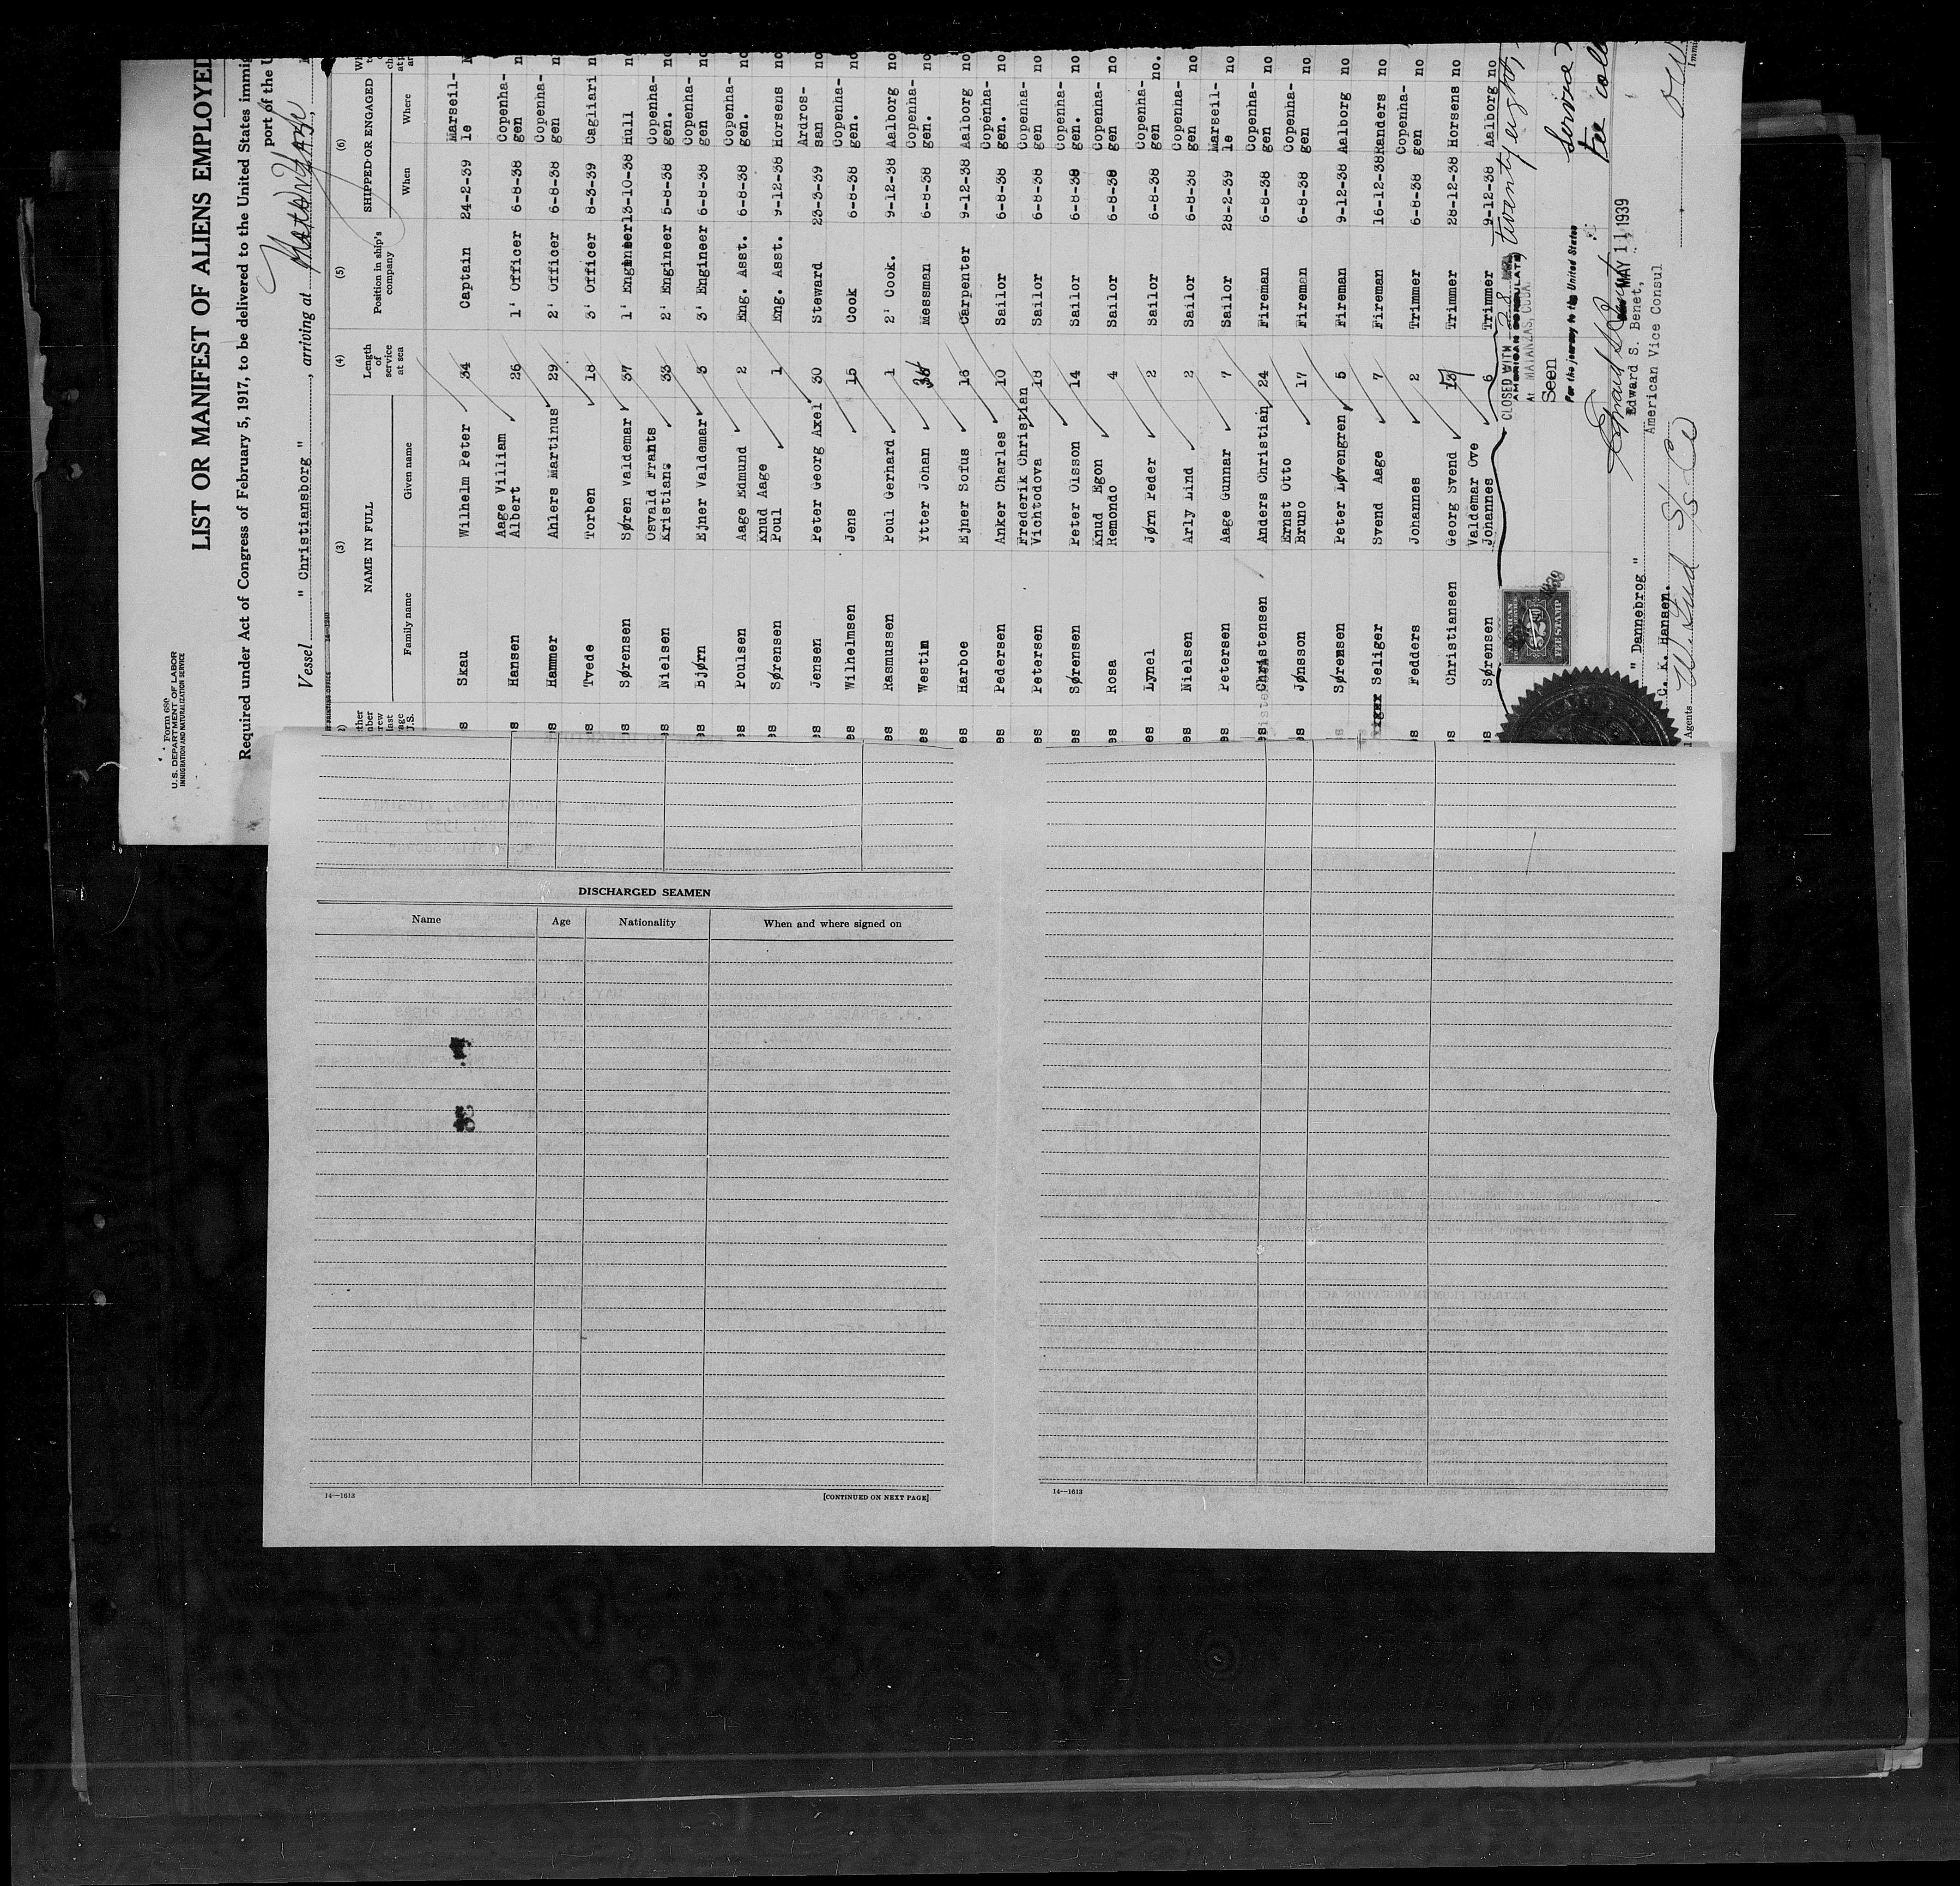 Form 680
U. S. DEPARTMENT OF LABOR
IMMIGRATION AND NATURALIZATION SERVICE
LIST OR MANIFEST OF ALIENS EMPLOYED
Required under Act of Congress of February 5, 1917, to be delivered to the United States immig
port of the U
Vessel " Christiansborg ", arriving at
(3) (4) (5) (6)
NAME IN FULL Length of service at sea Position in ship's company SHIPPED OR ENGAGED
Family name Given name When Where
Skau Wilhelm Peter 34 Captain 24-2-39 Marseil-le
es Hansen Aage Villiam Albert 26 1' Officer 6-8-38 Copenha-gen
es Hammer Ahlers Martinus 29 2' Officer 6-8-38 Copenha-gen
es Tvede Torben 18 3' Officer 8-3-39 Cagliari
es Sørensen Søren Valdemar 37 1' Engineer 13-10-38 Hull no
es Nielsen Osvald Frants Kristian 33 2' Engineer 5-8-38 Copenha-gen. no
es Bjørn Ejner Valdemar 3 3' Engineer 6-8-38 Copenha-gen no
es Poulsen Aage Edmund 2 Eng. Asst. 6-8-38 Copenha-gen. no
es Sørensen Knud Aage Poul 1 Eng. Asst. 9-12-38 Horsens no
es Jensen Peter Georg Axel 30 Steward 23-3-39 Ardros-san no
es Wilhelmsen Jens 15 Cook 6-8-38 Copenha-gen. no
es Rasmussen Poul Gerhard 1 2' Cook. 9-12-38 Aalborg no
es Westin Ytter Johan Messman 6-8-38 Copenha-gen. no
es Harboe Ejner Sofus 16 Carpenter 9-12-38 Aalborg no
es Pedersen Anker Charles 10 Sailor 6-8-38 Copenha-gen. no
es Petersen Frederik Christian Vichtodova 18 Sailor 6-8-38 Copenha-gen no
es Sørensen Peter Olsson 14 Sailor 6-8-38 Copenha-gen. no
es Rosa Knud Egon Remondo 4 Sailor 6-8-38 Copenha-gen no
es Lynel Jørn Peder 2 Sailor 6-8-38 Copenha-gen no.
es Nielsen Arly Lind 2 Sailor 6-8-38 Copenha-gen no
es Petersen Aage Gunnar 7 Sailor 28-2-39 Marseil-le no
es Christensen Anders Christian 24 Fireman 6-8-38 Copenha-gen no
es Jønsson Ernst Otto Bruno 17 Fireman 6-8-38 Copenha-gen no
es Sørensen Peter Løvengren 5 Fireman 9-12-38 Aalborg no
Seliger Svend Aage 7 Fireman 16-12-38 Randers no
es Fedders Johannes 2 Trimmer 6-8-38 Copenha-gen no
es Christiansen Georg Svend Trimmer 28-12-38 Horsens no
es Sørensen Valdemar Ove Johannes 6 Trimmer 9-12-38 Aalborg no
CLOSED WITH 28 twenty eight,
AMERICAN CONSULATE
At MATANZAS, CUBA.
Seen
For the journey to the United States
Service
Fee
MAY 11 1939
Edward S. Benet,
American Vice Consul
FEE STAMP
" Dannebrog "
C. K. Hansen.
Agents
DISCHARGED SEAMEN
Name Age Nationality When and where signed on
14—1613 [CONTINUED ON NEXT PAGE]
14—1613